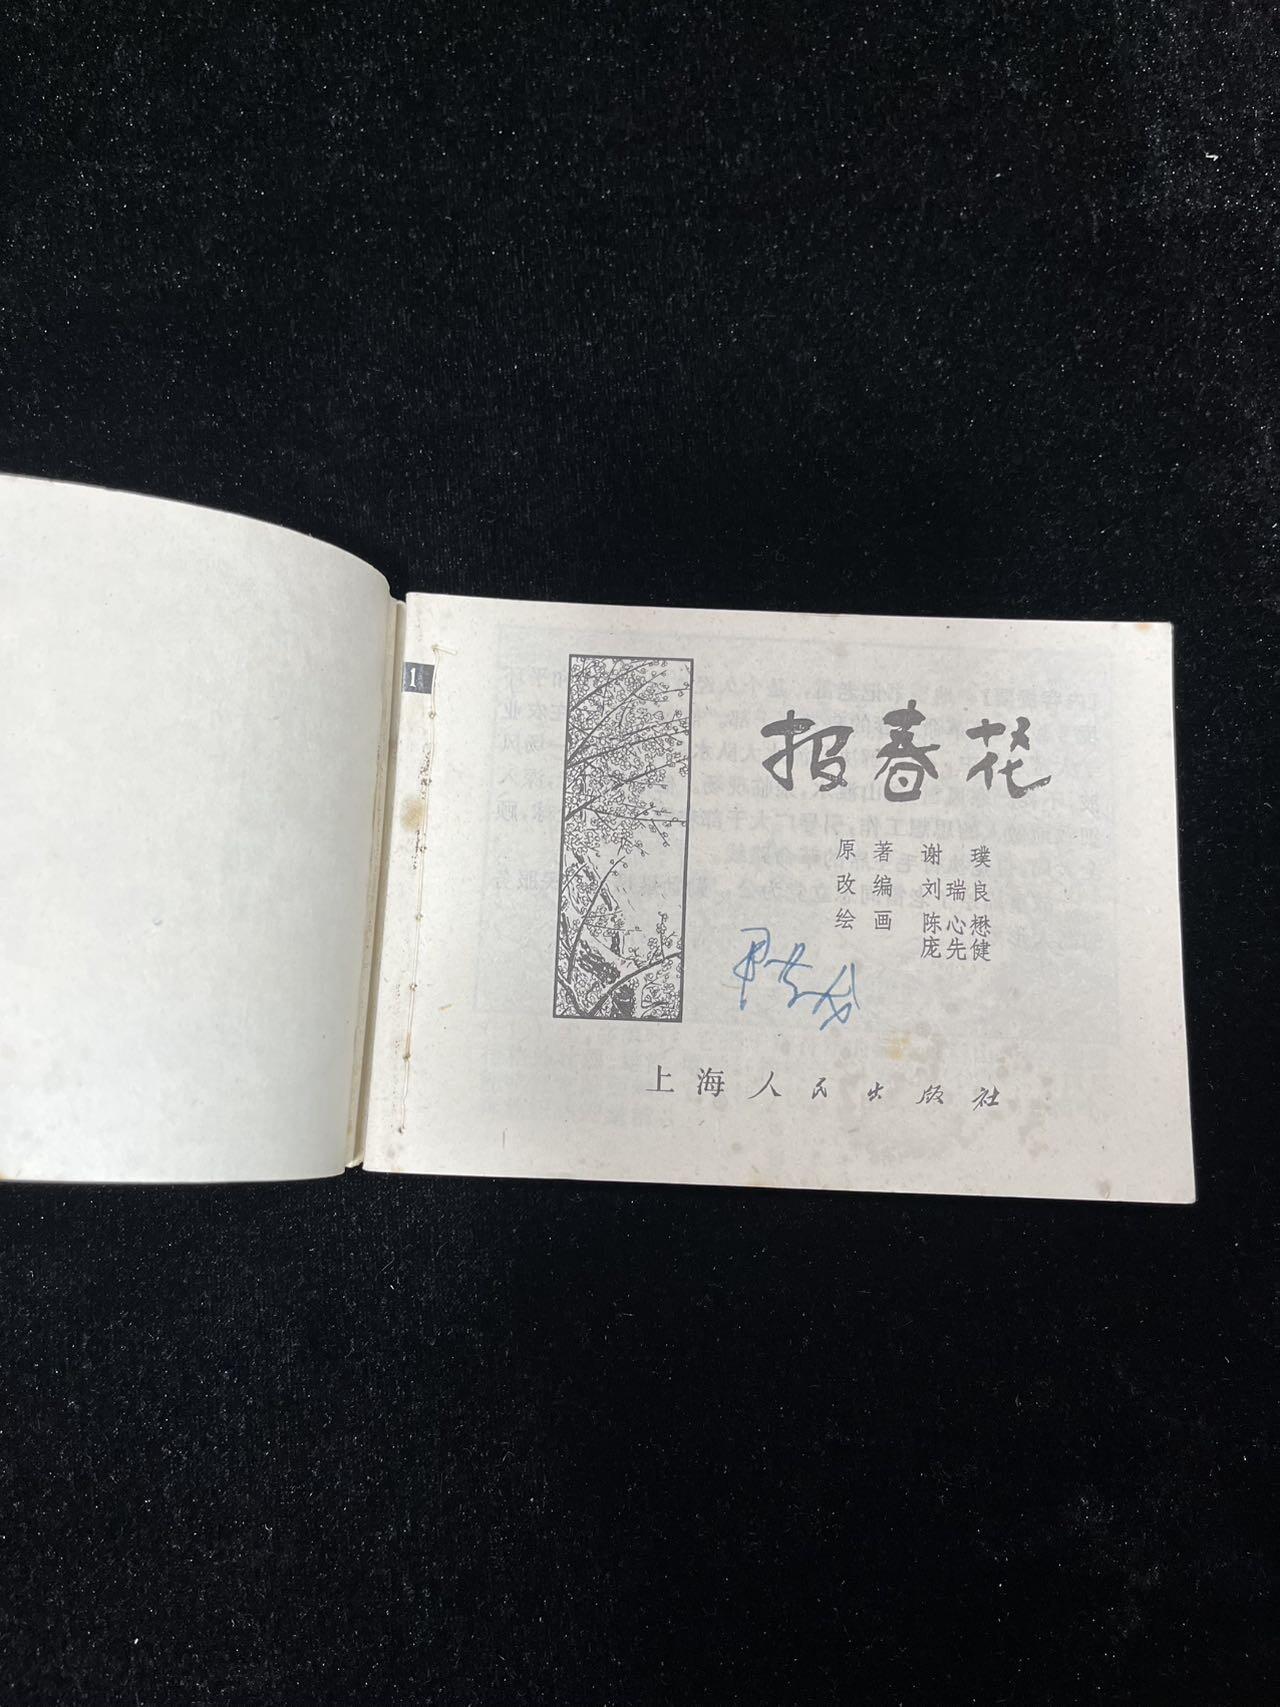 1
报春花
原 著 谢 璞
改 编 刘瑞良
绘 画 陈心懋
庞先健
上海人民出版社